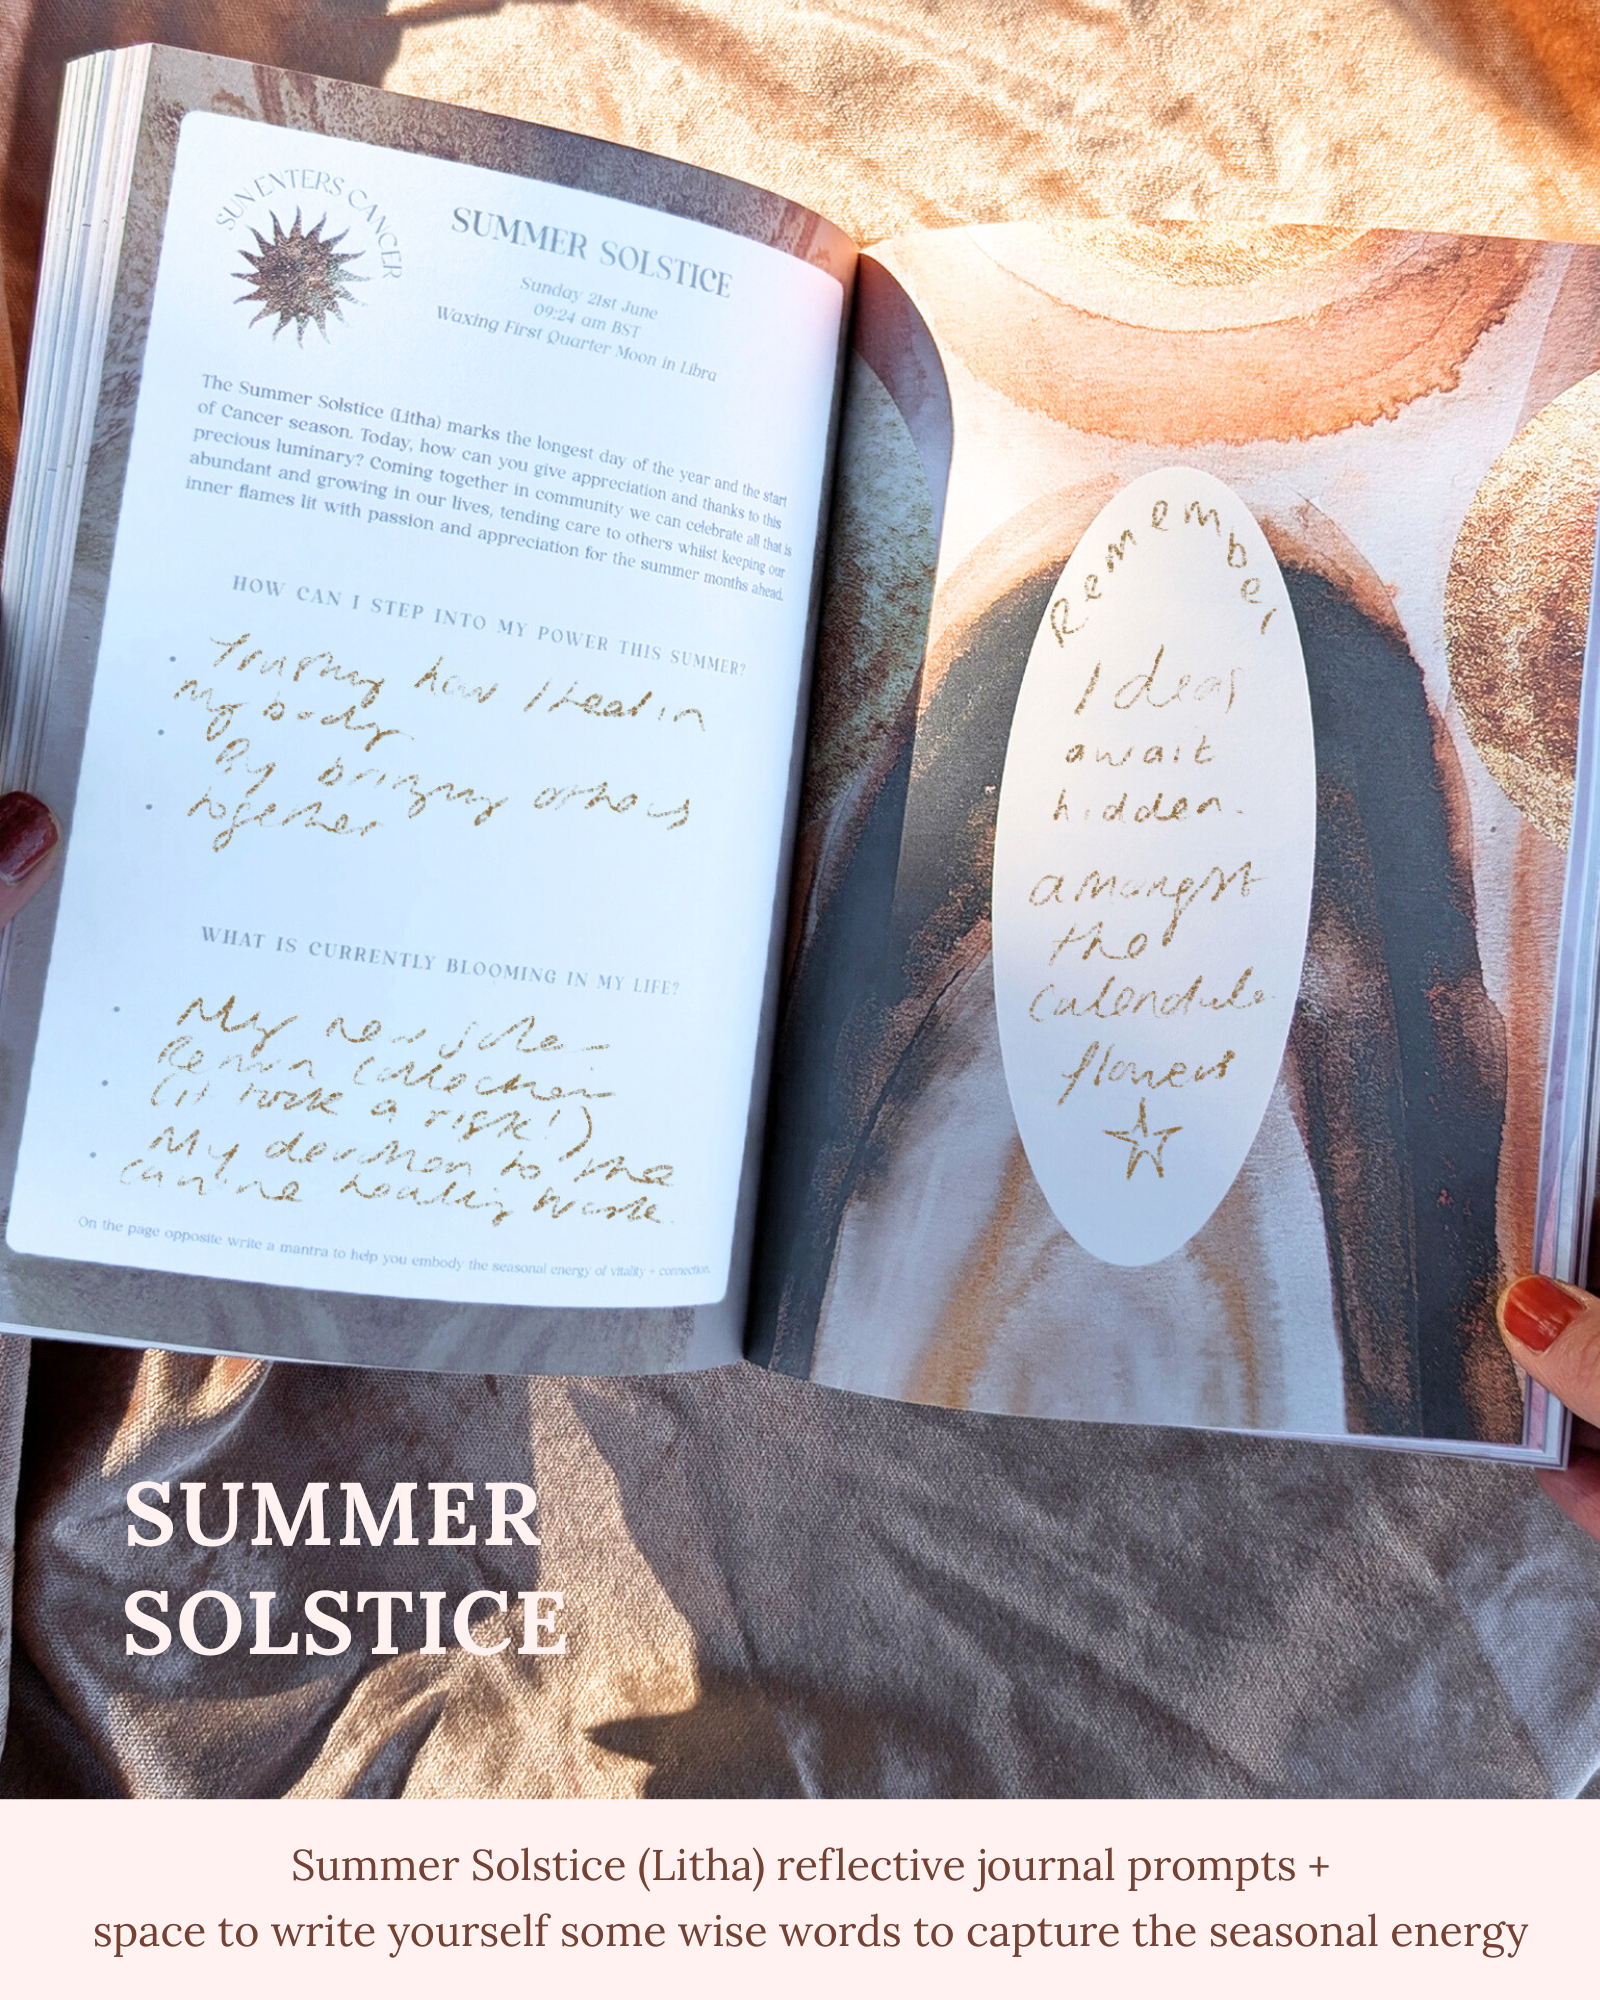 SUN ENTERS CANCER
SUMMER SOLSTICE
Sunday 21st June
09:24 am BST
Waxing First Quarter Moon in Libra
The Summer Solstice (Litha) marks the longest day of the year and the start
of Cancer season. Today, how can you give appreciation and thanks to this
precious luminary? Coming together in community we can celebrate all that is
abundant and growing in our lives, tending care to others whilst keeping our
inner flames lit with passion and appreciation for the summer months ahead.
HOW CAN I STEP INTO MY POWER THIS SUMMER?
Trusting how I heal in
my body
By bringing others
together
WHAT IS CURRENTLY BLOOMING IN MY LIFE?
My new
(it took a risk!)
My devotion to the
canine healing work.
On the page opposite write a mantra to help you embody the seasonal energy of vitality + connection.
Remember
Ideas
await
hidden.
amongst
the
Calendula
flowers
SUMMER
SOLSTICE
Summer Solstice (Litha) reflective journal prompts +
space to write yourself some wise words to capture the seasonal energy